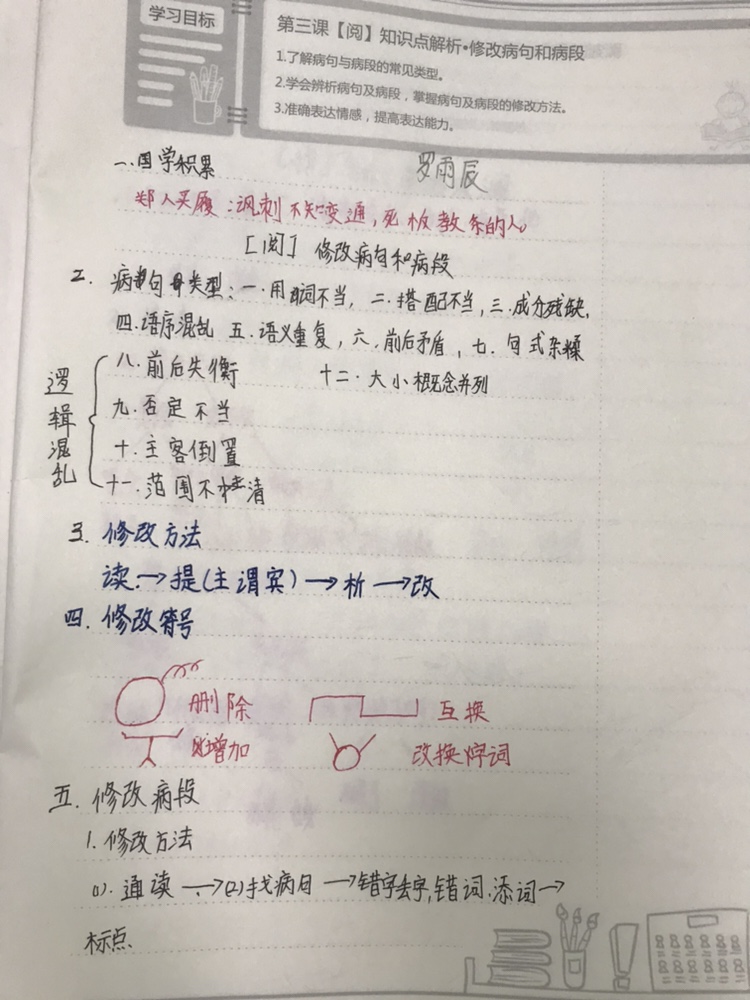 学习目标
第三课【阅】知识点解析•修改病句和病段
1.了解病句与病段的常见类型。
2.学会辨析病句及病段，掌握病句及病段的修改方法。
3.准确表达情感，提高表达能力。
一.国学积累 罗雨辰
郑人买履：讽刺不知变通，死板教条的人。
[阅] 修改病句和病段
2. 病句类型：一.用词不当，二.搭配不当，三.成分残缺，
四.语序混乱 五.语义重复，六.前后矛盾，七.句式杂糅
逻辑混乱
八.前后失衡 十二.大小概念并列
九.否定不当
十.主客倒置
十一.范围不清
3. 修改方法
读→提(主谓宾)→析→改
四.修改符号
删除 互换
增加 改换字词
五.修改病段
1.修改方法
(1).通读→(2)找病句→错字去字,错词.添词→
标点